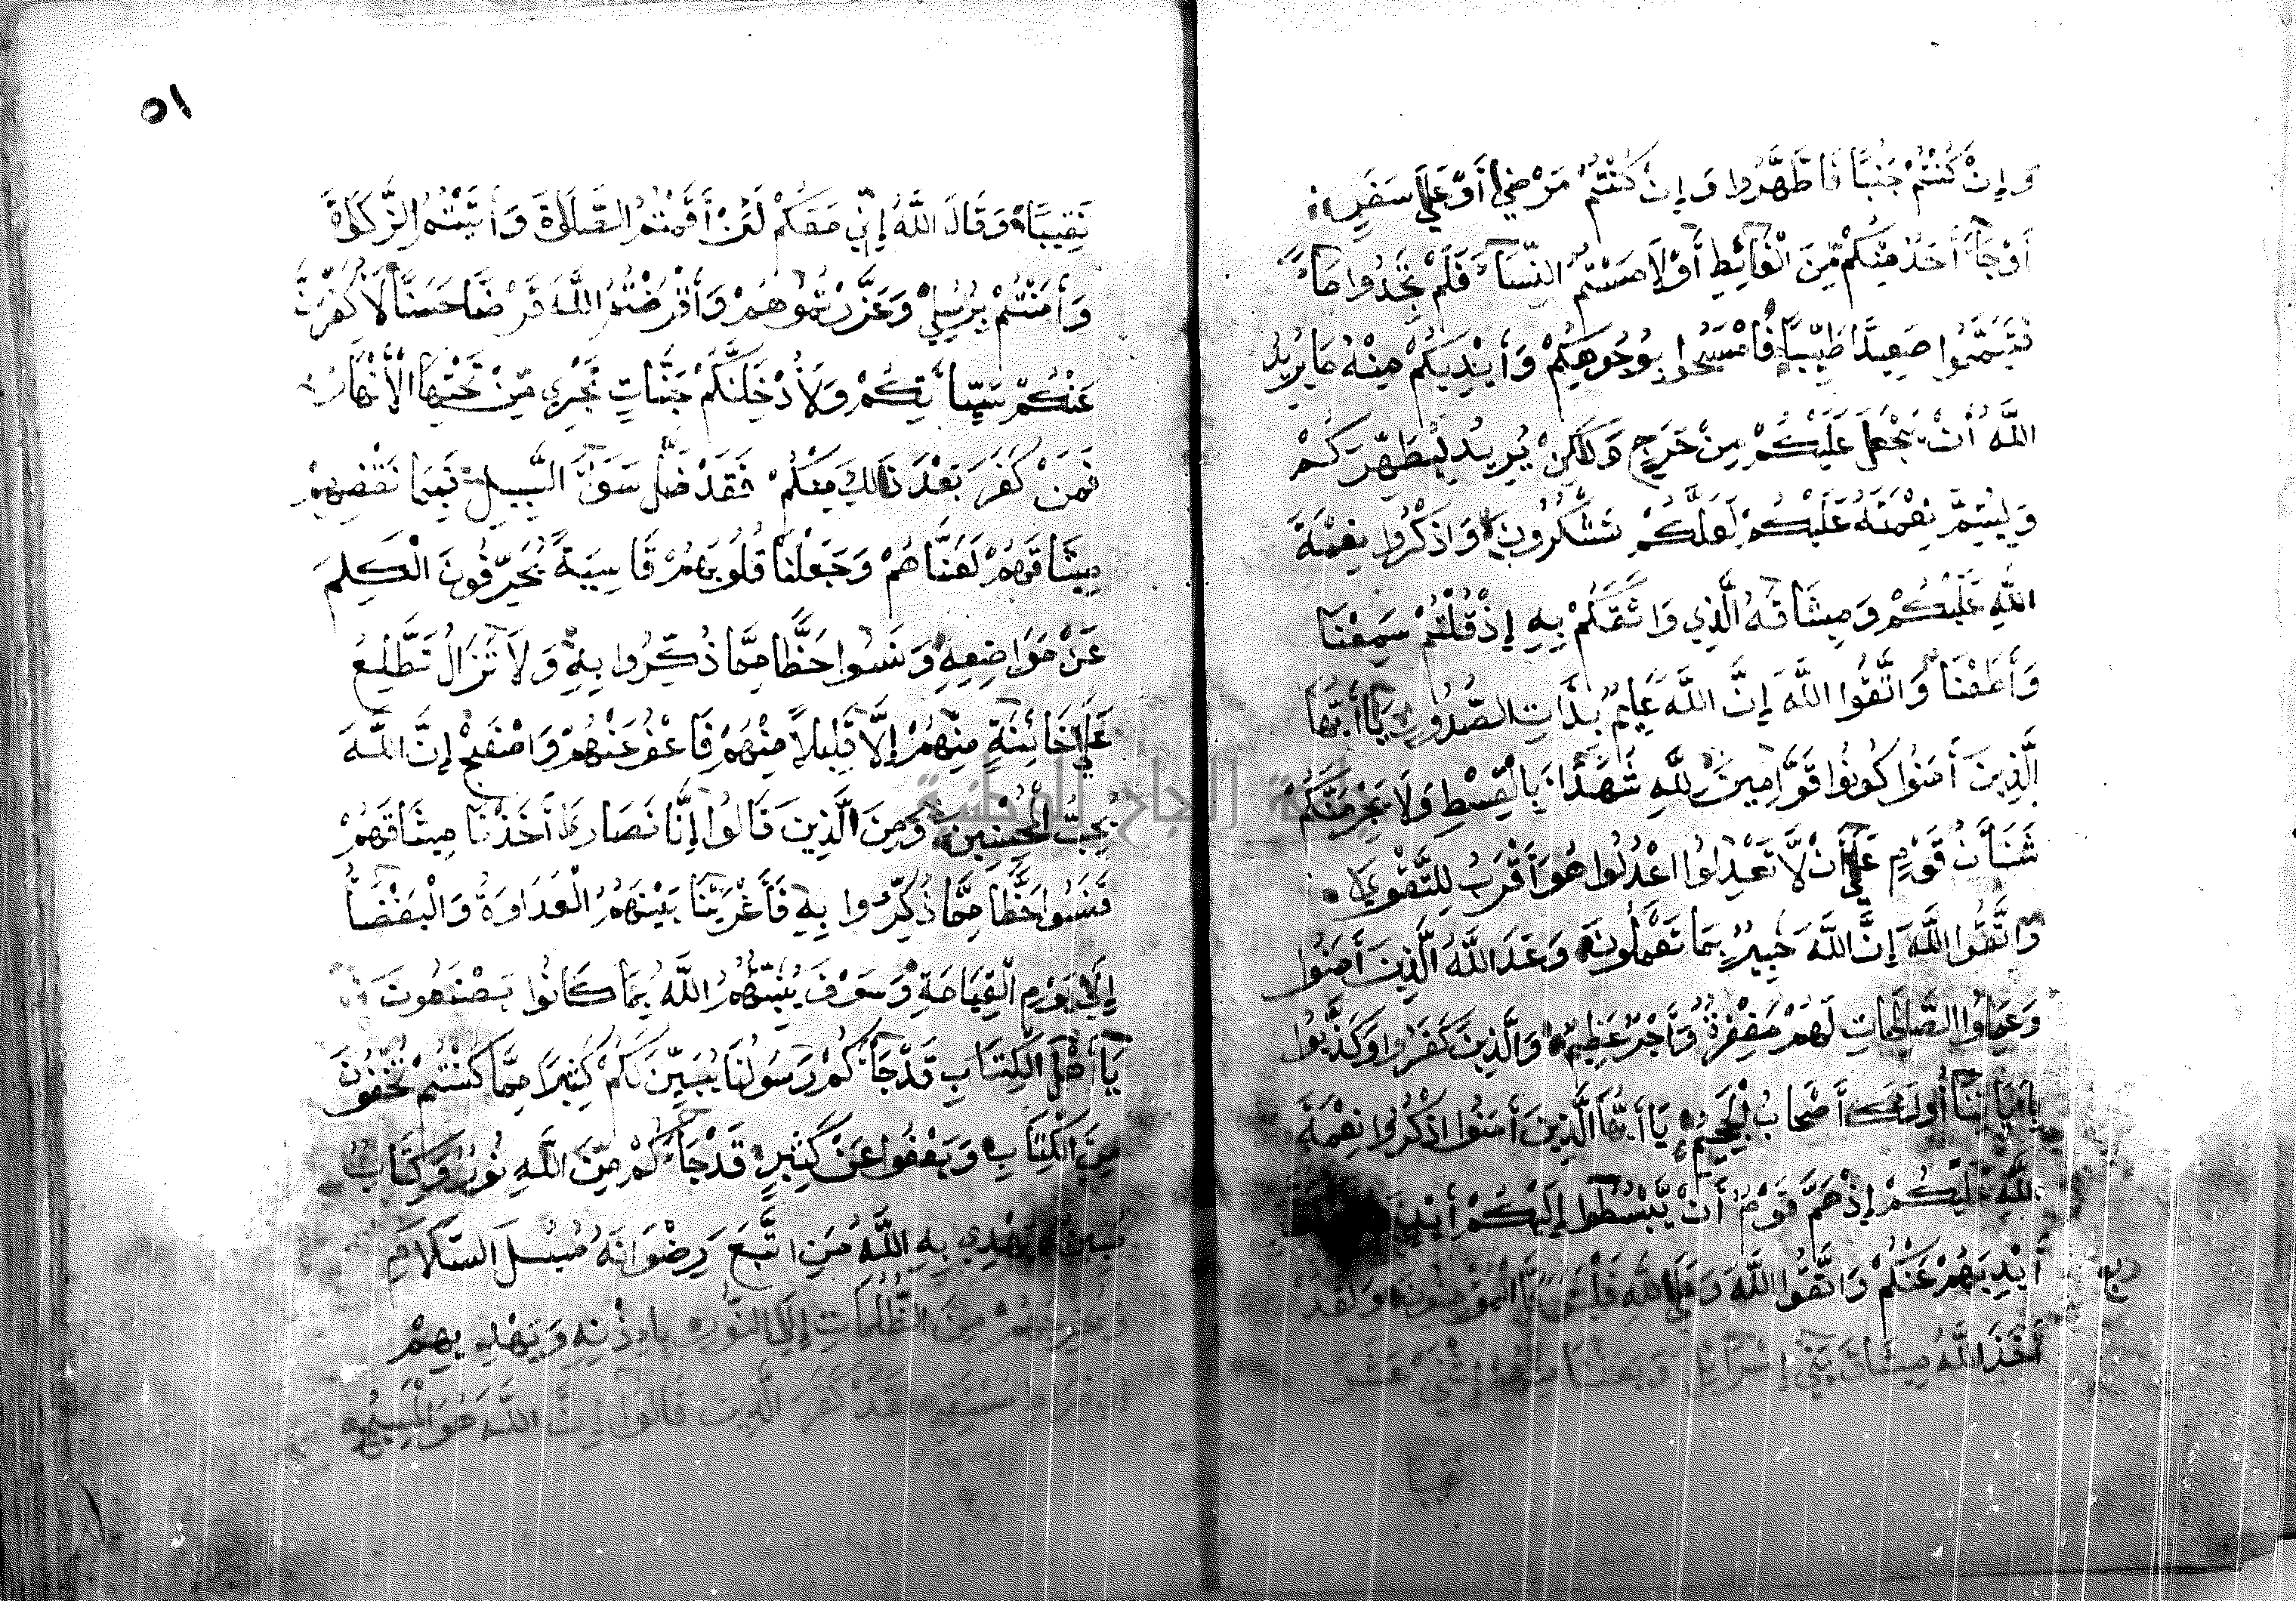 وَإِنْ كُنْتُمْ جُنُبًا فَاطَّهَّرُوا وَإِنْ كُنْتُمْ مَرْضَىٰ أَوْ عَلَىٰ سَفَرٍ
أَوْ جَآءَ أَحَدٌ مِّنْكُمْ مِّنَ الْغَآئِطِ أَوْ لَامَسْتُمُ النِّسَآءَ فَلَمْ تَجِدُوا مَآءً
فَتَيَمَّمُوا صَعِيدًا طَيِّبًا فَامْسَحُوا بِوُجُوهِكُمْ وَأَيْدِيكُمْ مِنْهُ مَا يُرِيدُ
اللَّهُ أَنْ يَجْعَلَ عَلَيْكُمْ مِنْ حَرَجٍ وَلَاكِنْ يُرِيدُ لِيُطَهِّرَكُمْ
وَلِيُتِمَّ نِعْمَتَهُ عَلَيْكُمْ لَعَلَّكُمْ تَشْكُرُونَ وَاذْكُرُوا نِعْمَةَ
اللَّهِ عَلَيْكُمْ وَمِيثَاقَهُ الَّذِي وَاثَقَكُمْ بِهِ إِذْ قُلْتُمْ سَمِعْنَا
وَأَطَعْنَا وَاتَّقُوا اللَّهَ إِنَّ اللَّهَ عَلِيمٌ بِذَاتِ الصُّدُورِ يَا أَيُّهَا
الَّذِينَ أَمَنُوا كُونُوا قَوَّامِينَ لِلَّهِ شُهَدَآءَ بِالْقِسْطِ وَلَا يَجْرِمَنَّكُمْ
شَنَأَنُ قَوْمٍ عَلَىٰ أَنْ لَّا تَعْدِلُوا اعْدِلُوا هُوَ أَقْرَبُ لِلتَّقْوَىٰ
وَاتَّقُوا اللَّهَ إِنَّ اللَّهَ خَبِيرٌ بِمَا تَعْمَلُونَ وَعَدَ اللَّهُ الَّذِينَ أَمَنُوا
وَعَمِلُوا الصَّالِحَاتِ لَهُمْ مَغْفِرَةٌ وَأَجْرٌ عَظِيمٌ وَالَّذِينَ كَفَرُوا وَكَذَّبُوا
بِأَيَاتِنَا أُولَٰئِكَ أَصْحَابُ الْجَحِيمِ يَا أَيُّهَا الَّذِينَ أَمَنُوا اذْكُرُوا نِعْمَةَ
اللَّهِ عَلَيْكُمْ إِذْ هَمَّ قَوْمٌ أَنْ يَّبْسُطُوا إِلَيْكُمْ
أَيْدِيَهُمْ عَنْكُمْ وَاتَّقُوا اللَّهَ وَعَلَى اللَّهِ فَلْيَتَوَكَّلِ الْمُؤْمِنُونَ وَلَقَدْ
ربع
أَخَذَ اللَّهُ مِيثَاقَ بَنِي إِسْرَآئِيلَ وَبَعَثْنَا مِنْهُمُ اثْنَيْ عَشَرَ
نَقِيبًا
٥١
نَقِيبًا وَقَالَ اللَّهُ إِنِّي مَعَكُمْ لَئِنْ أَقَمْتُمُ الصَّلَاةَ وَأَتَيْتُمُ الزَّكَاةَ
وَأَمَنْتُمْ بِرُسُلِي وَعَزَّرْتُمُوهُمْ وَأَقْرَضْتُمُ اللَّهَ قَرْضًا حَسَنًا لَأُكَفِّرَنَّ
عَنْكُمْ سَيِّئَاتِكُمْ وَلَأُدْخِلَنَّكُمْ جَنَّاتٍ تَجْرِي مِنْ تَحْتِهَا الْأَنْهَارُ
فَمَنْ كَفَرَ بَعْدَ ذَالِكَ مِنْكُمْ فَقَدْ ضَلَّ سَوَآءَ السَّبِيلِ فَبِمَا نَقْضِهِمْ
مِيثَاقَهُمْ لَعَنَّاهُمْ وَجَعَلْنَا قُلُوبَهُمْ قَاسِيَةً يُحَرِّفُونَ الْكَلِمَ
عَنْ مَوَاضِعِهِ وَنَسُوا حَظًّا مِمَّا ذُكِّرُوا بِهِ وَلَا تَزَالُ تَطَّلِعُ
عَلَىٰ خَآئِنَةٍ مِنْهُمْ إِلَّا قَلِيلًا مِنْهُمْ فَاعْفُ عَنْهُمْ وَاصْفَحْ إِنَّ اللَّهَ
يُحِبُّ الْمُحْسِنِينَ وَمِنَ الَّذِينَ قَالُوا إِنَّا نَصَارَىٰ أَخَذْنَا مِيثَاقَهُمْ
فَنَسُوا حَظًّا مِمَّا ذُكِّرُوا بِهِ فَأَغْرَيْنَا بَيْنَهُمُ الْعَدَاوَةَ وَالْبَغْضَآءَ
إِلَىٰ يَوْمِ الْقِيَامَةِ وَسَوْفَ يُنَبِّئُهُمُ اللَّهُ بِمَا كَانُوا يَصْنَعُونَ
يَا أَهْلَ الْكِتَابِ قَدْ جَآءَكُمْ رَسُولُنَا يُبَيِّنُ لَكُمْ كَثِيرًا مِمَّا كُنْتُمْ تُخْفُونَ
مِنَ الْكِتَابِ وَيَعْفُوا عَنْ كَثِيرٍ قَدْ جَآءَكُمْ مِنَ اللَّهِ نُورٌ وَكِتَابٌ
مُبِينٌ يَهْدِي بِهِ اللَّهُ مَنِ اتَّبَعَ رِضْوَانَهُ سُبُلَ السَّلَامِ
وَيُخْرِجُهُمْ مِنَ الظُّلُمَاتِ إِلَى النُّورِ بِإِذْنِهِ وَيَهْدِيهِمْ
إِلَىٰ صِرَاطٍ مُسْتَقِيمٍ لَقَدْ كَفَرَ الَّذِينَ قَالُوا إِنَّ اللَّهَ هُوَ الْمَسِيحُ